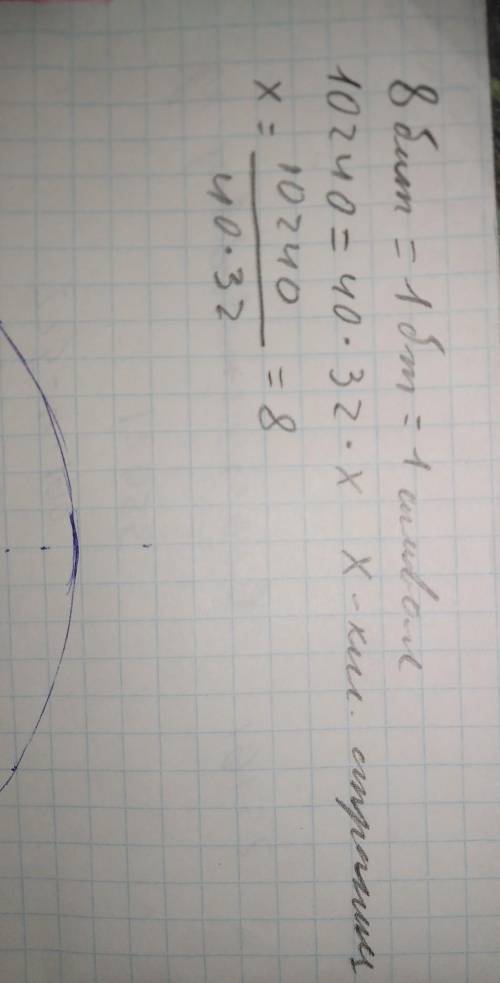 8 бит = 1 бт = 1 символ
10240 = 40 · 32 · x x - кол. страниц
x = 10240 / 40 · 32 = 8